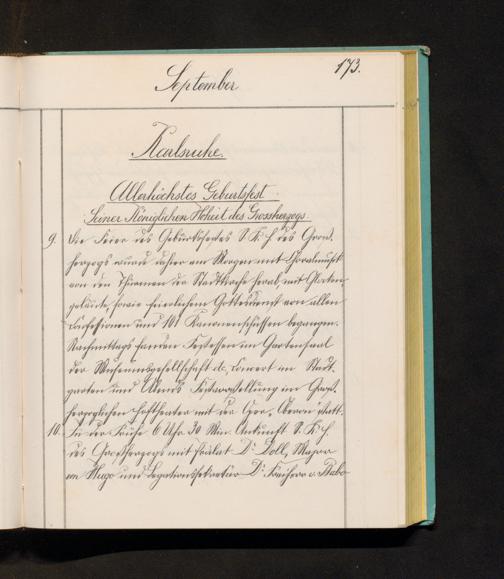 173.
September
Karlsruhe.
Allerhöchstes Geburtsfest
Seiner Königlichen Hoheit des Grossherzogs.
9. Die Feier des Geburtsfestes S. K. H. des Gross-
herzogs wurde früh am Morgen mit Choralmusik
von den Thürmen der Stadtkirche herab, mit Glocken-
geläute, sowie feierlichem Gottesdienst von allen
Confessionen und 101 Kanonenschüssen begangen.
Nachmittags fanden Festessen im Gartensaal
der Museumsgesellschaft Concert im Stadt-
garten und Abends Festvorstellung im Gross-
herzoglichen Hoftheater mit der Oper Oberon statt.
10. In der Frühe 6 Uhr 30 Min. Ankunft S. K. H.
des Großherzogs mit Prälat Dr. Doll, Major
und Legationssekretär Dr. Freiherr v. Babo